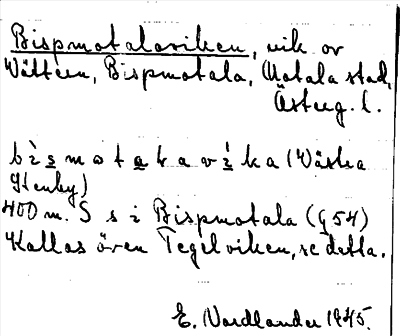 Bispmotalaviken, vik av
Vättern, Bispmotala, Motala stad,
Österg. l.
bìsmotalavíka (Västra
Stenby)
400 m. S s i Bispmotala (G54)
Kallas även Tegelviken, se detta.
E. Nordlander 1945.